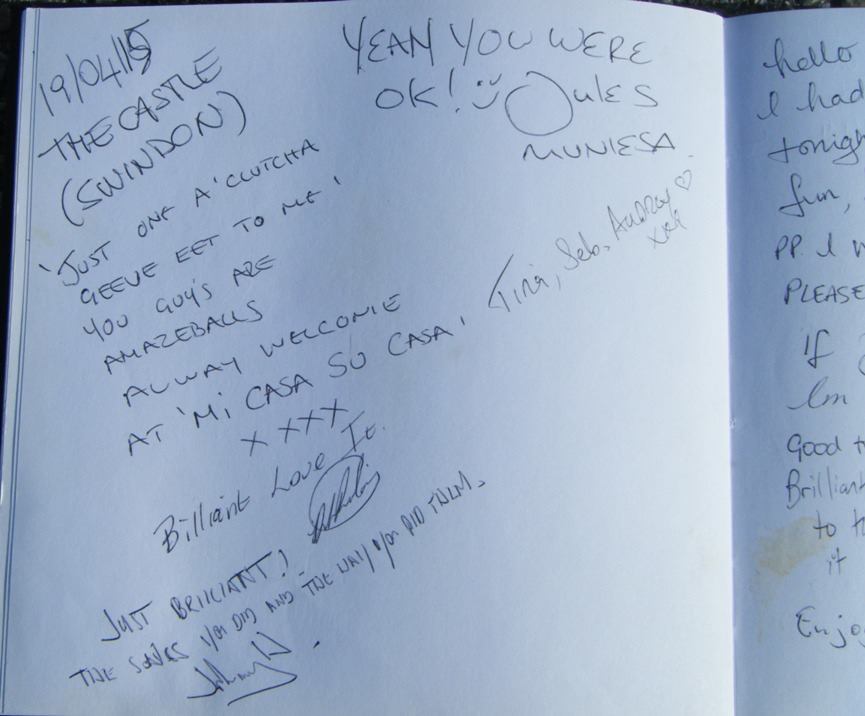 19/04/15
THE CASTLE
(SWINDON)
YEAH YOU WERE
OK! JULES
MUNIESA
'JUST ONE A'CLUTCHA
GEEVE EET TO ME'
YOU GUY'S ARE
AMAZEBALLS
ALWAY WELCOME
AT 'MI CASA SU CASA'
XXXX
Tina, Seb, Audray ♡
Billiant Love It.
JUST BRILLIANT!
THE SONGS YOU DID AND THE WAY YOU DID THEM.
Johnny W
hello
I had
tonigh
fun,
PP I w
PLEASE
If
Im
Good t
Brilliant
to t
it
Enjo